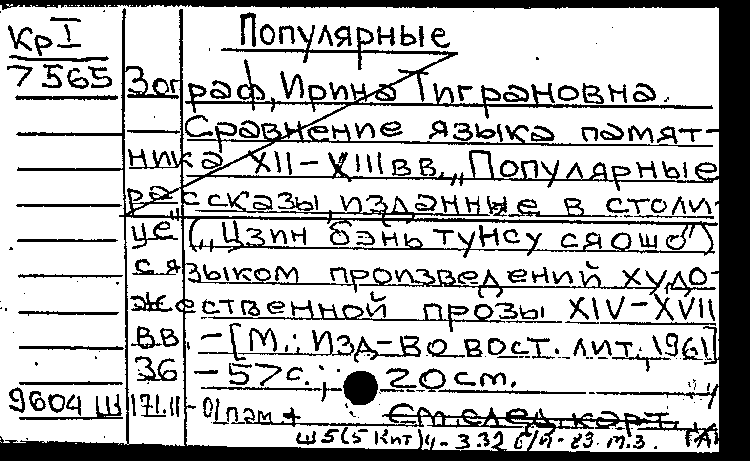 Популярные
Кр I
7565 Зограф, Ирина Тиграновна.
Сравнение языка памят-
ника XII-XIII вв. „Популярные
рассказы, изданные в столи-
це" („Цзин бэнь тунсу сяошо")
с языком произведений худо-
жественной прозы XIV-XVII
вв. - [М.: Изд-во вост. лит., 1961]
36 - 57 с.; 20 см.
9604 Ш 171.11-01 пам +
См. след. карт.
Ш5(5 Кит)4-3.32